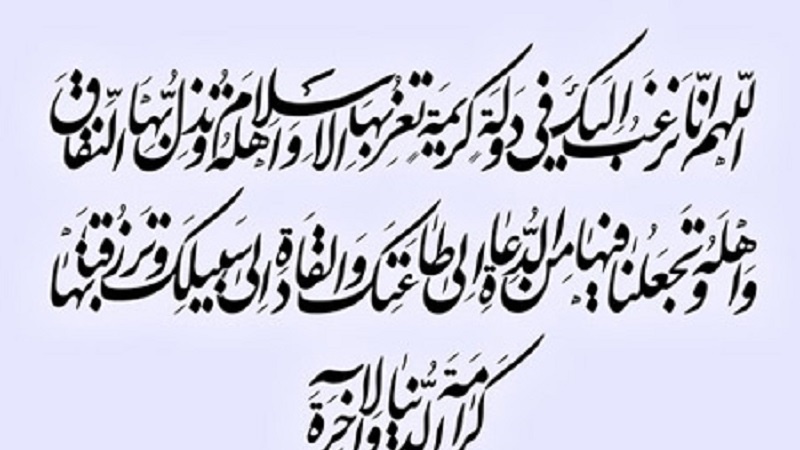 اللّهم انّا نرغب الیک فی دولة کریمة تعزّ بها الاسلام واهله وتذلّ بها النّفاق
واهله وتجعلنا فیها من الدّعاة الی طاعتک والقادة الی سبیلک وترزقنا بها
کرامة الدّنیا والآخرة